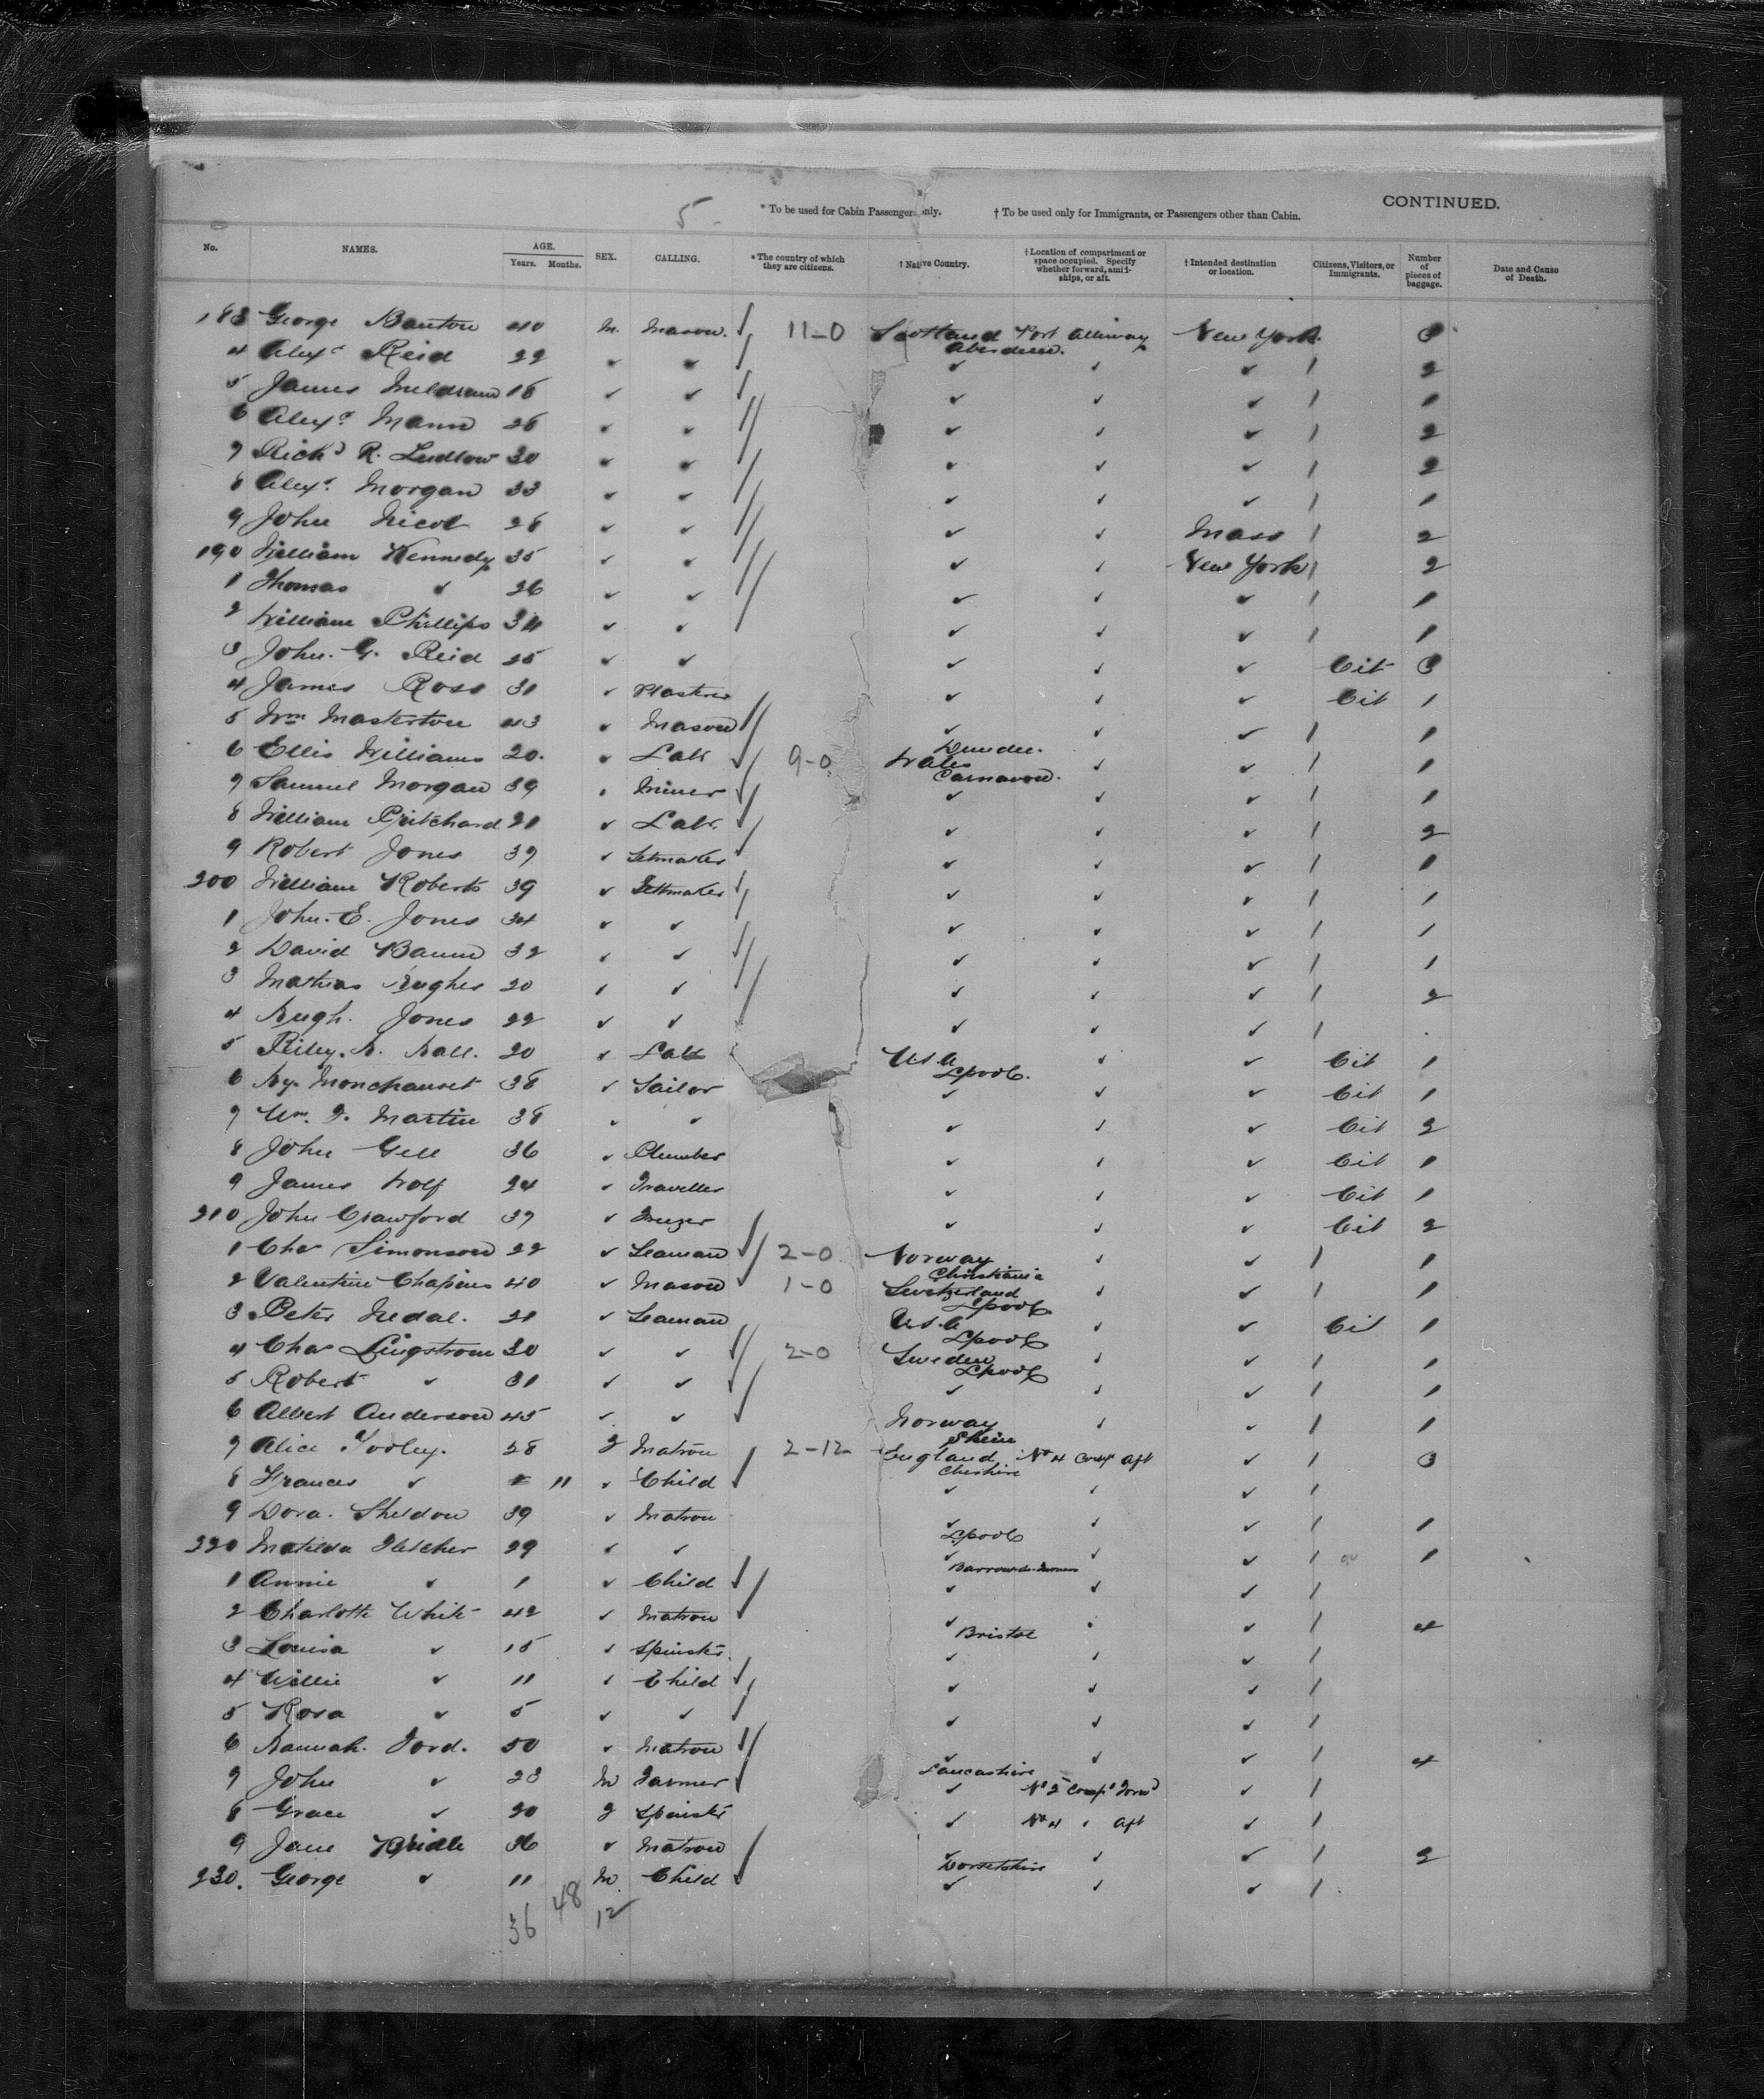 5
* To be used for Cabin Passengers only. † To be used only for Immigrants, or Passengers other than Cabin. CONTINUED.
No. NAMES. AGE. Years. Months. SEX. CALLING. * The country of which they are citizens. † Native Country. † Location of compartment or space occupied. Specify whether forward, amidships, or aft. † Intended destination or location. Citizens, Visitors, or Immigrants. Number of pieces of baggage. Date and Cause of Death.
183 George 40 M. Mason. 11-0 Scotland Aberdeen. Port New York. 3
4 Alexr Reid 22 ✓ ✓ ✓ ✓ ✓ / 2
5 James Meldrum 18 ✓ ✓ ✓ ✓ ✓ / 1
6 Alexr Mann 28 ✓ ✓ ✓ ✓ ✓ / 2
7 Richd R. Ludlow 30 ✓ ✓ ✓ ✓ ✓ / 2
8 Alexr Morgan 33 ✓ ✓ ✓ ✓ ✓ / 1
9 John Nicol 28 ✓ ✓ ✓ ✓ Mass / 2
190 William Kennedy 35 ✓ ✓ ✓ ✓ New York / 2
1 Thomas ✓ 26 ✓ ✓ ✓ ✓ ✓ / 1
2 William Phillips 34 ✓ ✓ ✓ ✓ ✓ / 1
3 John. G. Reid 25 ✓ ✓ ✓ ✓ ✓ Cit 3
4 James Ross 31 ✓ ✓ ✓ ✓ Cit 1
5 Wm Masterton 43 ✓ Mason ✓ Dundee. ✓ ✓ / 1
6 Ellis Williams 20. ✓ Labr 9-0 Wales Carnavon. ✓ ✓ / 1
9 Samuel Morgan 39 ✓ Miner ✓ ✓ ✓ / 1
8 William Pritchard 21 ✓ Labr. ✓ ✓ ✓ / 2
9 Robert Jones 37 ✓ Setmaker ✓ ✓ ✓ / 1
200 William Roberts 39 ✓ Settmaker ✓ ✓ ✓ / 1
1 John. E. Jones 34 ✓ ✓ ✓ ✓ ✓ / 1
2 David 32 ✓ ✓ ✓ ✓ ✓ / 1
3 Mathias Hughes 20 ✓ ✓ ✓ ✓ ✓ / 2
4 Hugh. Jones 22 ✓ ✓ ✓ ✓ ✓ /
5 Riley. H. Hall. 20 ✓ Labr U.S.A Lpool. ✓ ✓ Cit 1
6 Hy. 38 ✓ Sailor ✓ ✓ ✓ Cit 1
7 Wm. F. Martin 38 ✓ ✓ ✓ ✓ ✓ Cit 2
8 John Gell 36 ✓ Plumber ✓ ✓ ✓ Cit 1
9 James Wolf 24 ✓ Traveller ✓ ✓ ✓ Cit 1
210 John Crawford 37 ✓ ✓ ✓ ✓ Cit 2
1 Chas Simonson 22 ✓ Seaman 2-0 Norway Christiania ✓ ✓ / 1
2 Valentine 40 ✓ Mason 1-0 Switzerland Lpool ✓ ✓ / 1
3 Peter Nedal. 21 ✓ Seaman U.S.A Lpool ✓ ✓ Cit 1
4 Chas Lingstrom 30 ✓ ✓ 2-0 Sweden Lpool ✓ ✓ / 1
5 Robert ✓ 31 ✓ ✓ ✓ ✓ ✓ / 1
6 Albert Anderson 45 ✓ ✓ Norway Skien ✓ ✓ / 1
7 Alice Tooley. 28 F Matron 2-12 England Cheshire No 4 Comp Aft ✓ / 3
8 Frances ✓ 11 ✓ Child ✓ ✓ ✓ /
9 Dora. Sheldon 39 ✓ Matron ✓ Lpool ✓ ✓ / 1
220 Matilda Fletcher 29 ✓ ✓ ✓ Barrow-in-Furness ✓ ✓ / 1
1 Annie ✓ 1 ✓ Child ✓ ✓ ✓ /
2 Charlotte White 42 ✓ Matron ✓ Bristol ✓ ✓ / 4
3 Louisa ✓ 15 ✓ Spinster. ✓ ✓ ✓ /
4 Willie ✓ 11 ✓ Child ✓ ✓ ✓ /
5 Rosa ✓ 5 ✓ ✓ ✓ ✓ ✓ /
6 Hannah. Ford. 50 ✓ Matron ✓ Lancashire ✓ ✓ / 4
7 John ✓ 23 M Farmer ✓ No 2 Compt Forwd ✓ /
8 Grace ✓ 20 F Spinster ✓ No 4 ✓ Aft ✓ /
9 Jane 36 ✓ Matron ✓ Dorsetshire ✓ ✓ / 2
230. George ✓ 11 M. Child ✓ ✓ ✓ /
36 48 12